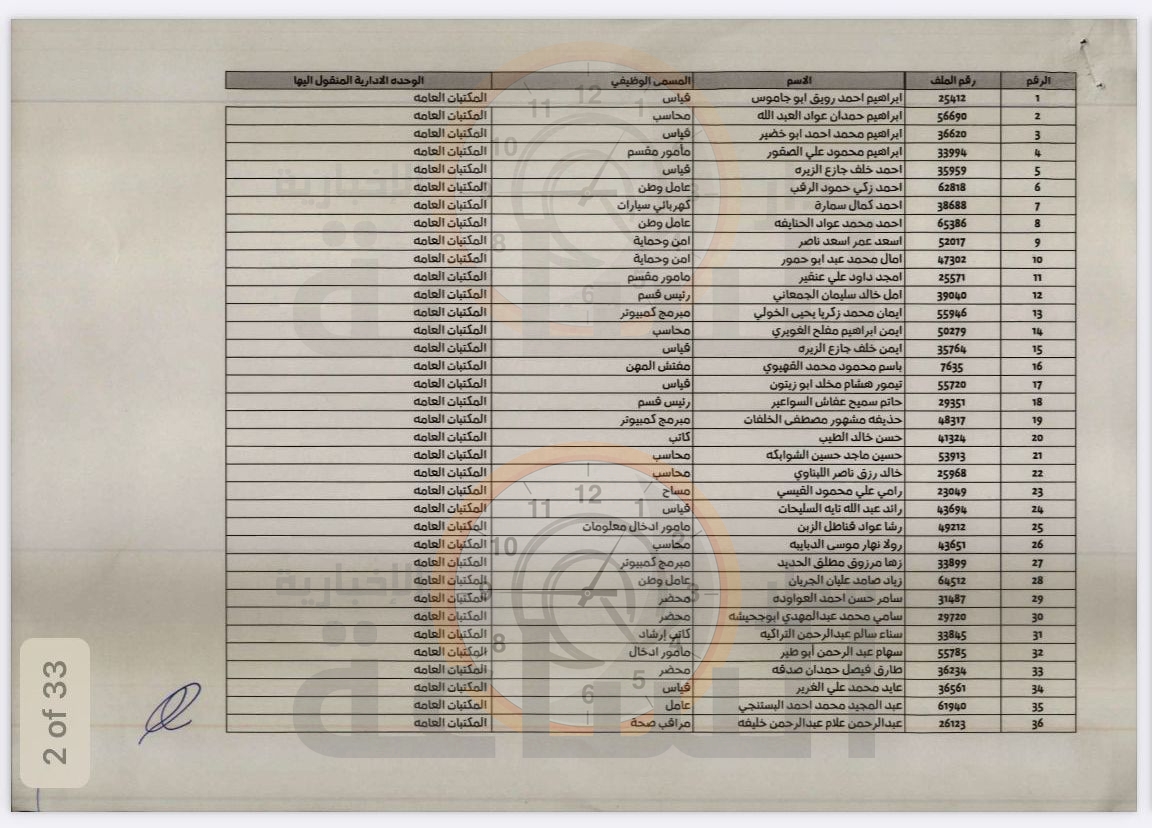 الرقم رقم الملف الاسم المسمى الوظيفي الوحده الادارية المنقول اليها
1 25412 ابراهيم احمد رويق ابو جاموس قياس المكتبات العامه
2 56690 ابراهيم حمدان عواد العبد الله محاسب المكتبات العامه
3 36620 ابراهيم محمد احمد ابو خضير قياس المكتبات العامه
4 33994 ابراهيم محمود علي الصقور مأمور مقسم المكتبات العامه
5 35959 احمد خلف جازع الزيره قياس المكتبات العامه
6 62818 احمد زكي حمود الرقب عامل وطن المكتبات العامه
7 38688 احمد كمال سمارة كهربائي سيارات المكتبات العامه
8 65386 احمد محمد عواد الحنايفه عامل وطن المكتبات العامه
9 52017 اسعد عمر اسعد ناصر امن وحماية المكتبات العامه
10 47302 امال محمد عبد ابو حمور امن وحماية المكتبات العامه
11 25571 امجد داود علي عنقير مامور مقسم المكتبات العامه
12 39040 امل خالد سليمان الجمعاني رئيس قسم المكتبات العامه
13 55946 ايمان محمد زكريا يحيى الخولي مبرمج كمبيوتر المكتبات العامه
14 50279 ايمن ابراهيم مفلح الغويري محاسب المكتبات العامه
15 35764 ايمن خلف جازع الزيره قياس المكتبات العامه
16 7635 باسم محمود محمد القهيوي مفتش المهن المكتبات العامه
17 55720 تيمور هشام مخلد ابو زيتون قياس المكتبات العامه
18 29351 حاتم سميح عفاش السواعير رئيس قسم المكتبات العامه
19 48317 حذيفه مشهور مصطفى الخلفات مبرمج كمبيوتر المكتبات العامه
20 41324 حسن خالد الطيب كاتب المكتبات العامه
21 53913 حسين ماجد حسين الشوابكه محاسب المكتبات العامه
22 25968 خالد رزق ناصر اللبناوي محاسب المكتبات العامه
23 23049 رامي علي محمود القيسي مساح المكتبات العامه
24 43694 رائد عبد الله تايه السليحات قياس المكتبات العامه
25 49212 رشا عواد قناطل الزبن مامور ادخال معلومات المكتبات العامه
26 43651 رولا نهار موسى الدبايبه محاسب المكتبات العامه
27 33899 زها مرزوق مطلق الحديد مبرمج كمبيوتر المكتبات العامه
28 64512 زياد صامد عليان الجريان عامل وطن المكتبات العامه
29 31487 سامر حسن احمد العواوده محضر المكتبات العامه
30 29720 سامي محمد عبدالمهدي ابوجحيشه محضر المكتبات العامه
31 33845 سناء سالم عبدالرحمن التراكيه كاتب إرشاد المكتبات العامه
32 55785 سهام عبد الرحمن أبو طير مأمور ادخال المكتبات العامه
33 36234 طارق فيصل حمدان صدقه محضر المكتبات العامه
34 36561 عايد محمد علي الغرير قياس المكتبات العامه
35 61940 عبد المجيد محمد احمد البستنجي عامل المكتبات العامه
36 26123 عبدالرحمن علام عبدالرحمن خليفه مراقب صحة المكتبات العامه
2 of 33